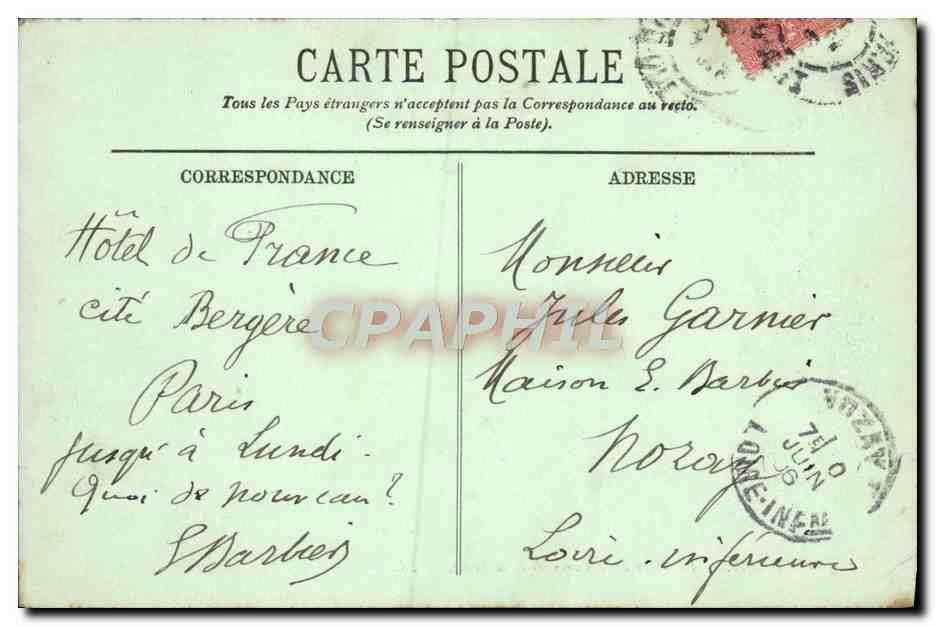 CARTE POSTALE
Tous les Pays étrangers n'acceptent pas la Correspondance au recto.
(Se renseigner à la Poste).
CORRESPONDANCE
Hôtel de France
cité Bergère
Paris
jusqu'à Lundi.
Quoi de nouveau?
E Barbier
ADRESSE
Monsieur
Jules Garnier
Maison E. Barbier
Nozay
Loire-inférieure
CPAPHIL
NOZAY
JUIN
06